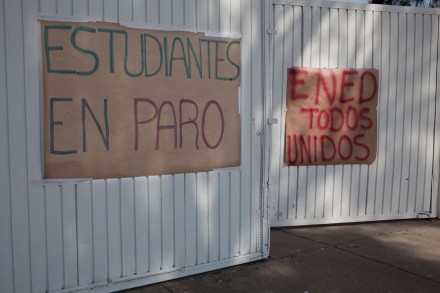 ESTUDIANTES
EN PARO
ENED
TODOS
UNIDOS